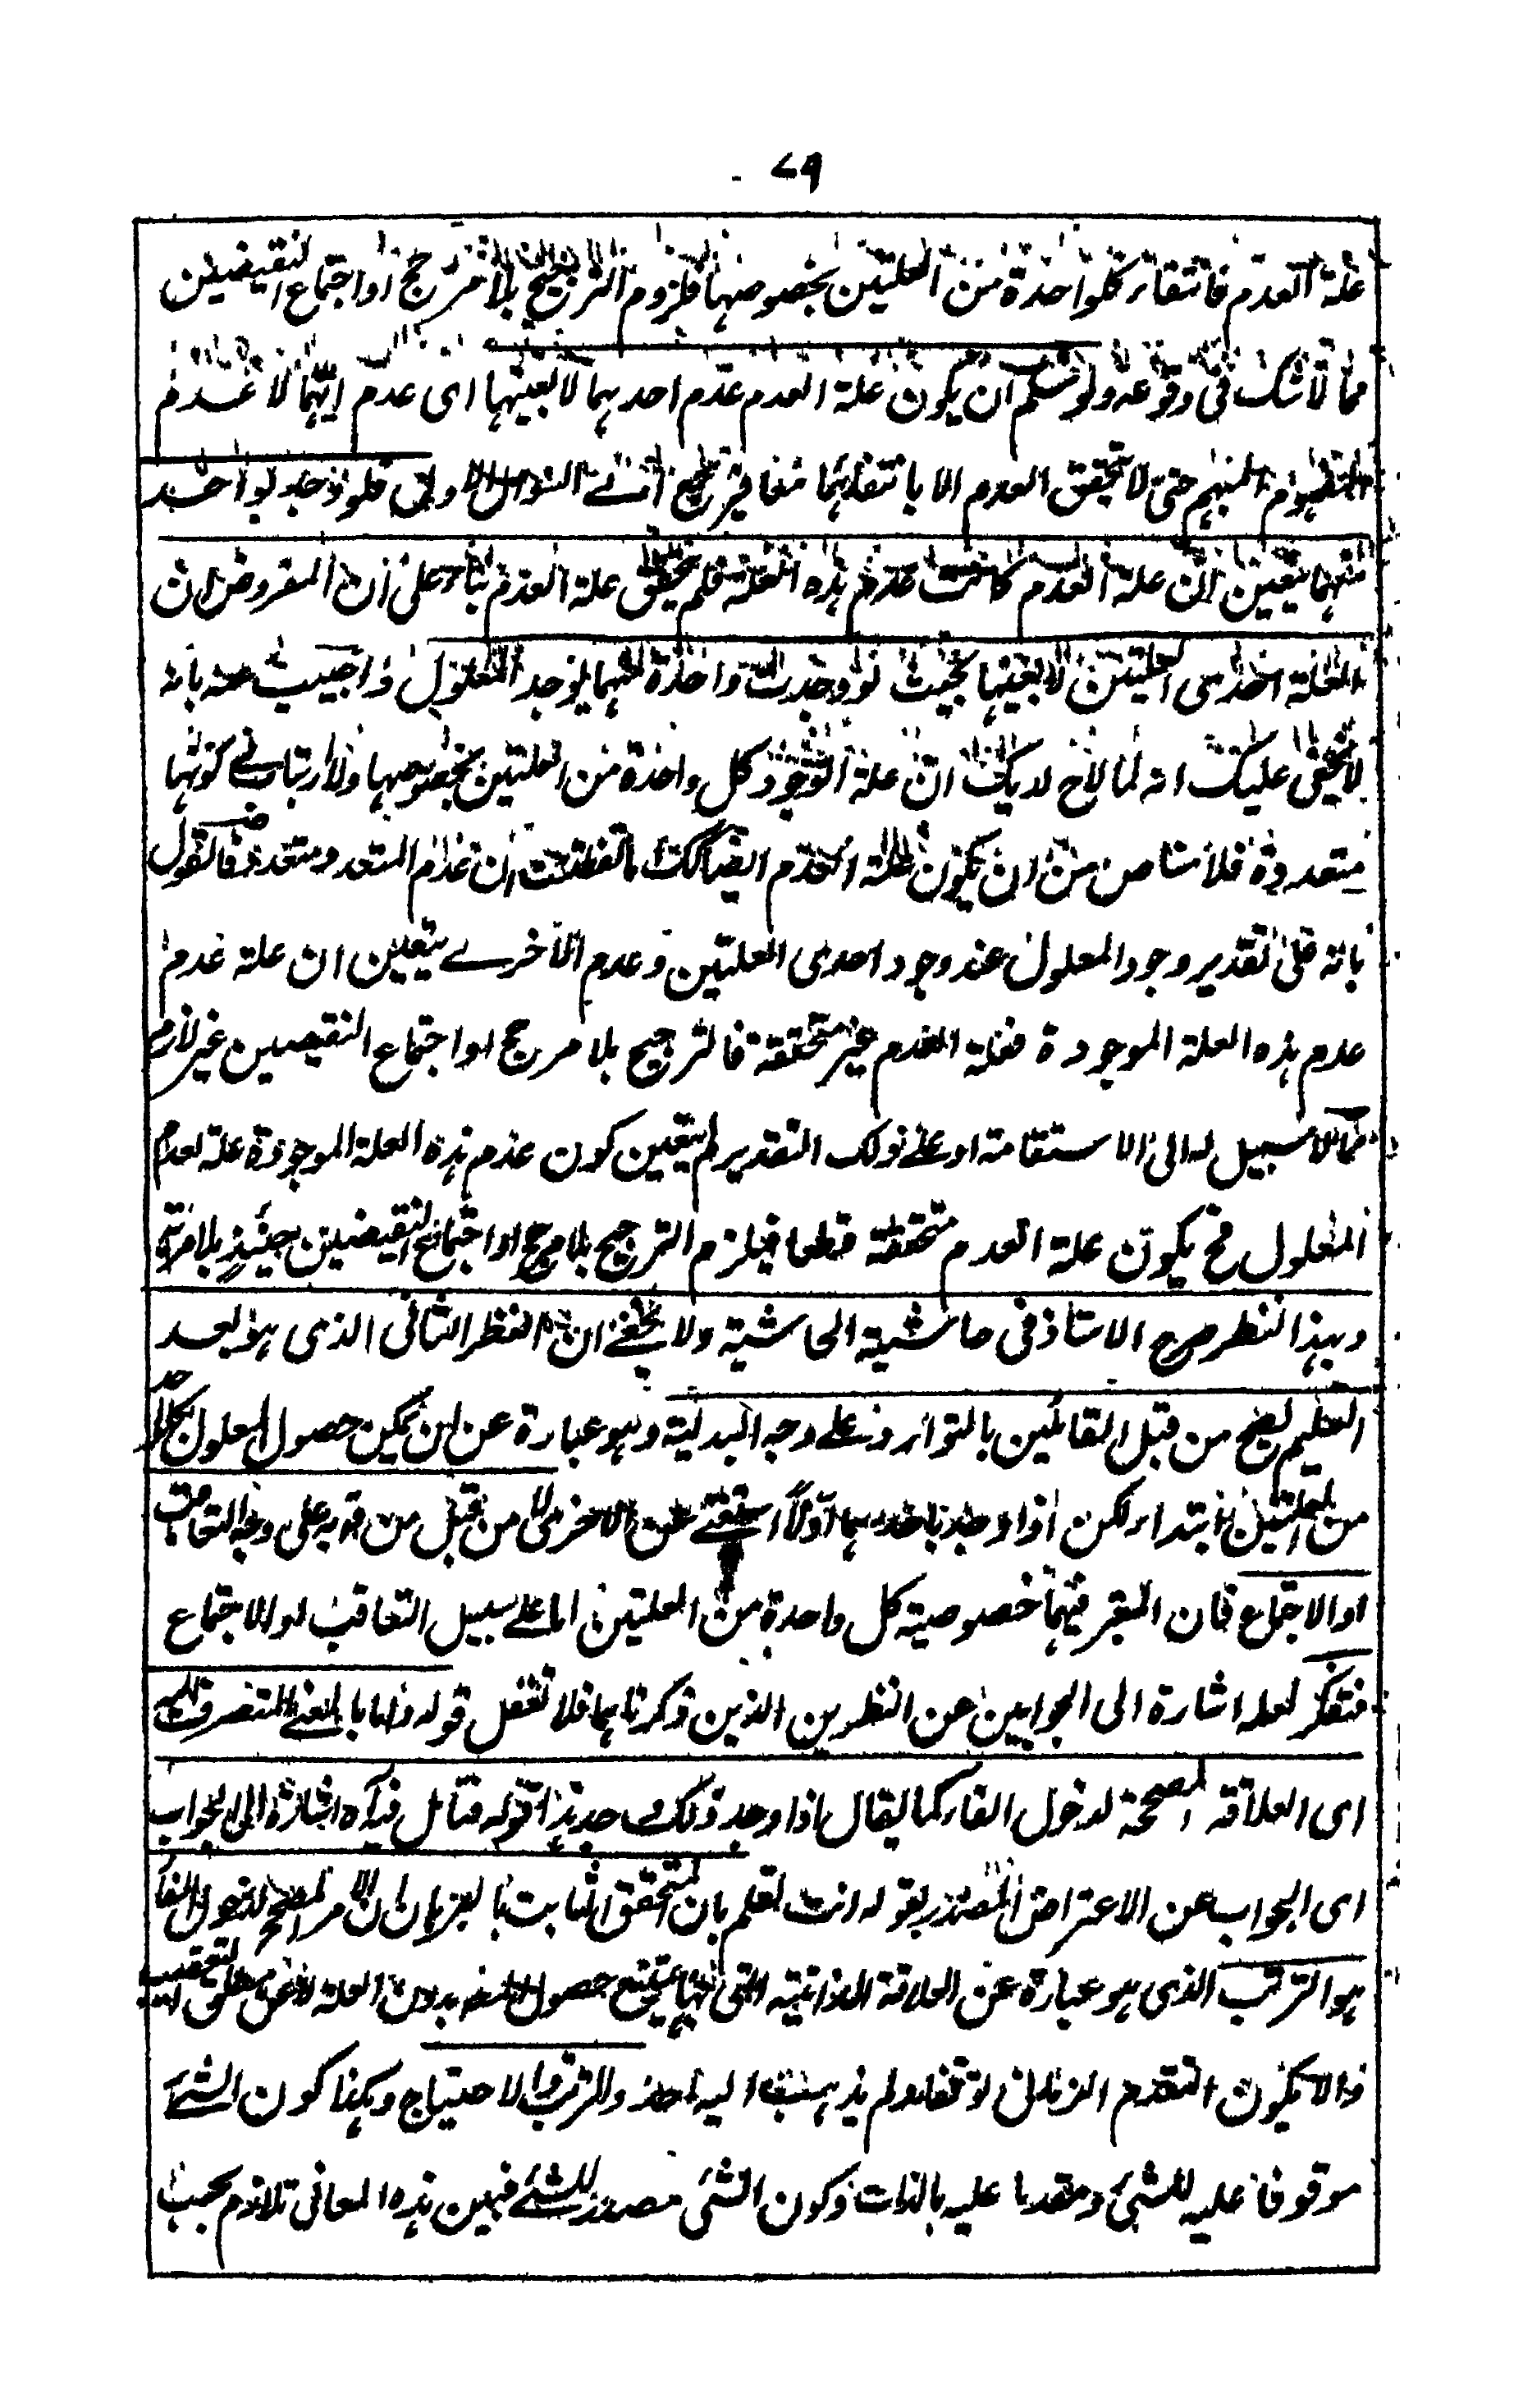 ٧٩
علة العدم فانتقاء كلواحدة من العلتين بخصوصها فلزوم الترجيح بلا مرجح او اجتماع النقيضين
مما لا شك فى وقوعه ولو سلم ان يكون علة العدم عدم احدهما لا بعينها اى عدم ايهما لا عدم
المفهوم المبهم حتى لا يتحقق العدم الا بانتفائهما معا فنرجع الى السوال الاول فلو وجد بواحد
منهما يتعين ان علة العدم كانت عدم هذه العلة فلم يتحقق علة العدم بناء على ان المفروض ان
العلة احدى العلتين لا بعينها بحيث لو وجدت واحدة منهما يوجد المعلول واجيب عنه بانه
لا يخفى عليك انه لما لاح لديك ان علة الوجود كل واحدة من العلتين بخصوصها ولا ارتياب فى كونها
متعددة فلا مناص من ان يكون علة العدم ايضا كذلك ما تفطنت ان عدم المتعدد متعدد فالقول
بانه على تقدير وجود المعلول عند وجود احدى العلتين وعدم الاخرى يتعين ان علة عدم
عدم هذه العلة الموجودة فعلة العدم غير متحققة فالترجيح بلا مرجح او اجتماع النقيضين غير لازم
مما لا سبيل له الى الاستقامة او على ذلك التقدير لم يتعين كون عدم هذه العلة الموجودة علة لعدم
المعلول فح يكون علة العدم متحققة قطعا فيلزم الترجيح بلا مرجح او اجتماع النقيضين حينئذ بلا مرية
وبهذا النظر صرح الاستاذ فى حاشية الحاشية ولا يخفى ان النظر الثانى الذى هو بعد
التسليم يصح من قبل القائلين بالتوارد على وجه البدلية وهو عبارة عن ان يمكن حصول المعلول بكل
من العلتين ابتداء لكن اذا وجد باحدهما اولا استغنى عن الاخرى لا من قبل من قوبه على وجه التعاقب
او الاجتماع فان المعتبر فيهما خصوصية كل واحدة من العلتين اما على سبيل التعاقب او الاجتماع
فتفكر لعله اشارة الى الجوابين عن النظرين الذين ذكرناهما فلا تغفل قوله واما بالمعنى المتضرفت
اى العلاقة المصححة لدخول الفاء كما يقال اذا وجد ذلك وجد هذا قوله فتامل فيه اشارة الى الجواب
اى الجواب عن الاعتراض المصدر بقوله انت تعلم بان المتحقق الثابت بالبرهان ان الامر المصحح لدخول الفاء
هو الترتب الذى هو عبارة عن العلاقة الذاتية التى بها يمتنع حصول بدون العلة لا عن مطلق التعقيب
والا يكون التقدم الزمانى توقفا ولم يذهب اليه احد والترتب والاحتياج وهكذا كون الشئ
موقوفا عليه للشئ ومقدما عليه بالذات وكون الشئ مصدرا للشئ فبين هذه المعانى تلازم بحسب